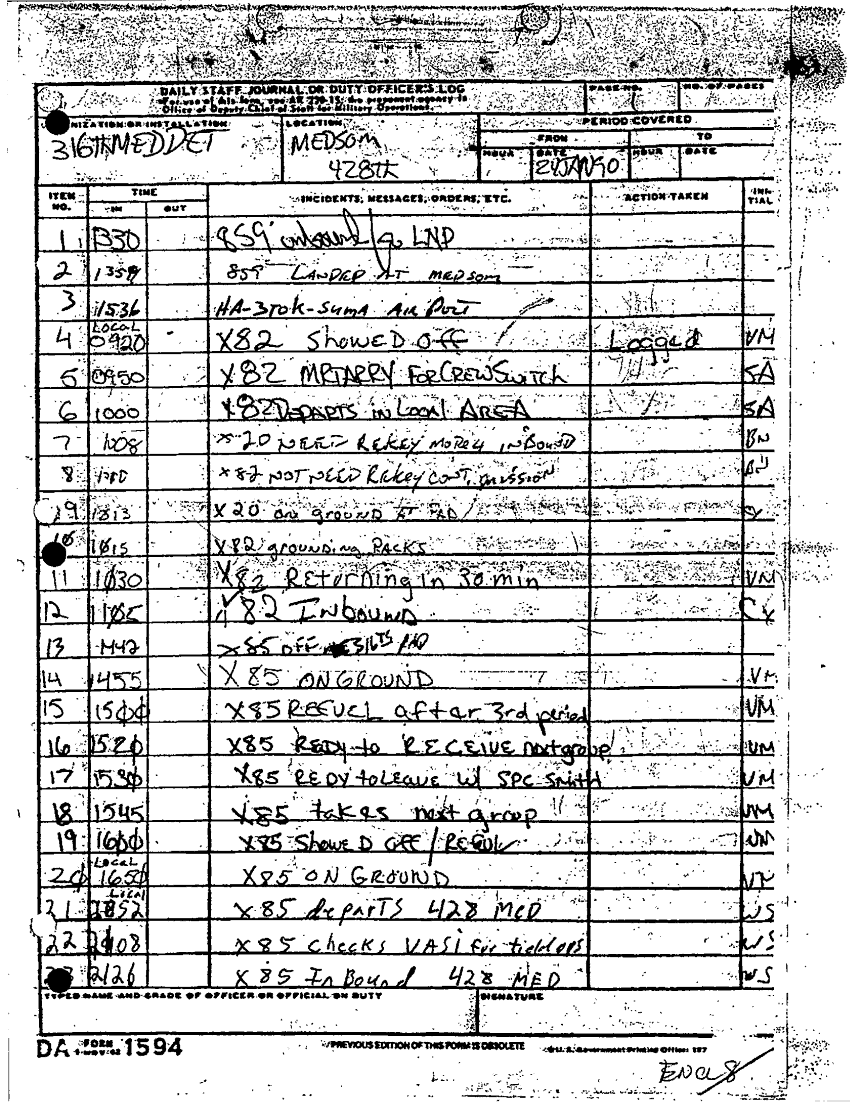 DAILY STAFF JOURNAL OR DUTY OFFICER'S LOG
For use of this form, see AR 220-15; the proponent agency is
Office of Deputy Chief of Staff for Military Operations.
PAGE NO.
NO. OF PAGES
ORGANIZATION OR INSTALLATION
316TH MED DET
LOCATION
MEDSOM
428th
PERIOD COVERED
FROM
TO
HOUR
DATE
HOUR
DATE
24JAN90
ITEM NO.
TIME
IN
OUT
INCIDENTS, MESSAGES, ORDERS, ETC.
ACTION TAKEN
INITIAL
1 1330 859 inbound
2 859 LANDED AT MEDSOM
3 1536 AIR PORT
4 LOCAL 0920 X82 SHOWED OFF Logged VM
5 0950 X82 FOR CREW SWITCH SA
6 1000 X82 DEPARTS IN LOCAL AREA SA
7 1008 X 20 NEED REKEY INBOUND BN
8 X 82 NOT NEED REKEY CONT. MISSION
9 X 20 ON GROUND AT PAD
10 1015 X82 grounding PACKS
11 1030 X82 Returning in 30 min VM
12 1105 X82 INBOUND
13 1442 X85 OFF PAD
14 1455 X85 ON GROUND VM
15 1500 X85 REFUEL after 3rd period VM
16 1520 X85 REDY to RECEIVE next group VM
17 1530 X85 REDY to LEAVE w/ SPC Smith VM
18 1545 X85 takes next group VM
19 1600 X85 SHOWED OFF / REFUL VM
20 LOCAL 1650 X85 ON GROUND VM
21 LOCAL X85 departs 428 MED WS
22 2108 X85 checks VASI for WS
23 2126 X85 InBound 428 MED WS
TYPED NAME AND GRADE OF OFFICER OR OFFICIAL ON DUTY
SIGNATURE
DA FORM 1 NOV 62 1594
PREVIOUS EDITION OF THIS FORM IS OBSOLETE
U.S. Government Printing Office:
ENCL 8